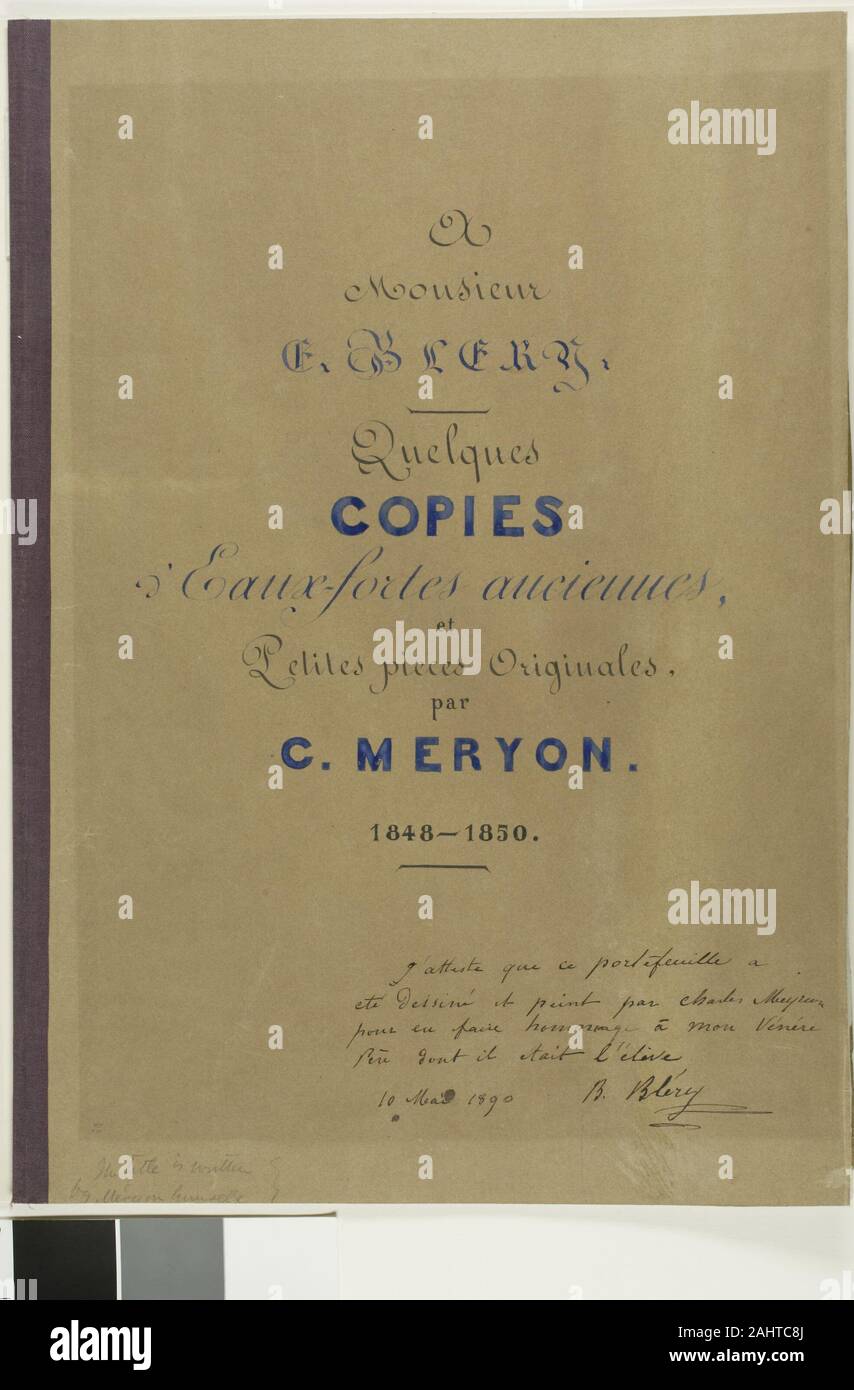 A
Monsieur
E. BLERY.
Quelques
COPIES
d'Eaux-fortes anciennes,
et
Petites pièces Originales,
par
C. MERYON.
1848–1850.
J'atteste que ce portefeuille a
eté dessiné et peint par charles Meyron
pour en faire hommage à mon Vénéré
Père dont il etait l'élève
10 Mai 1890 B. Bléry
The title is written
by Meryon himself
alamy
Image ID: 2AHTC8J
www.alamy.com